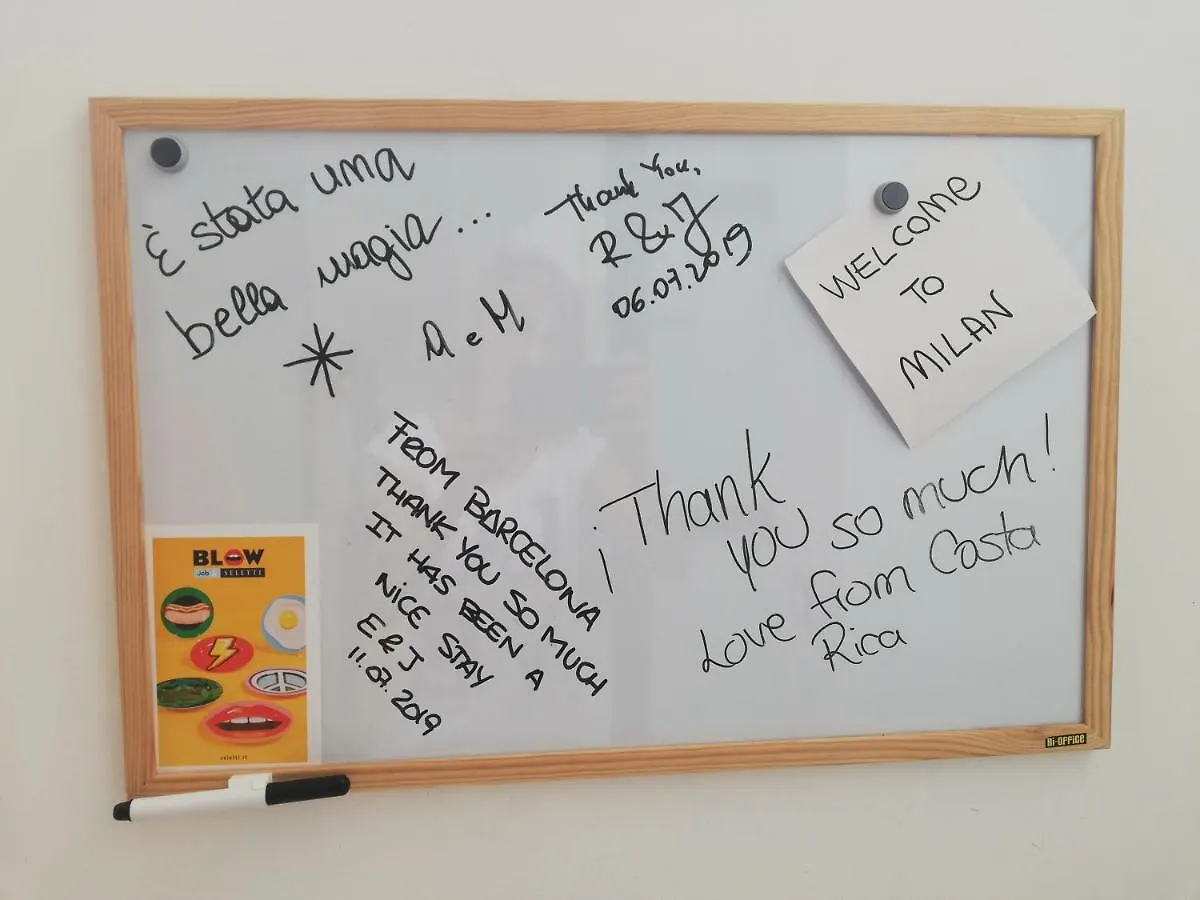 È stata una
bella magia...
M e M
Thank You,
R & J
06.07.2019
WELCOME
TO
MILAN
FROM BARCELONA
THANK YOU SO MUCH
IT HAS BEEN A
NICE STAY
E & J
11.07.2019
¡Thank
you so much!
Love from Costa
Rica
BLOW
Job SELETTI
seletti.it
Bi-OFFICE